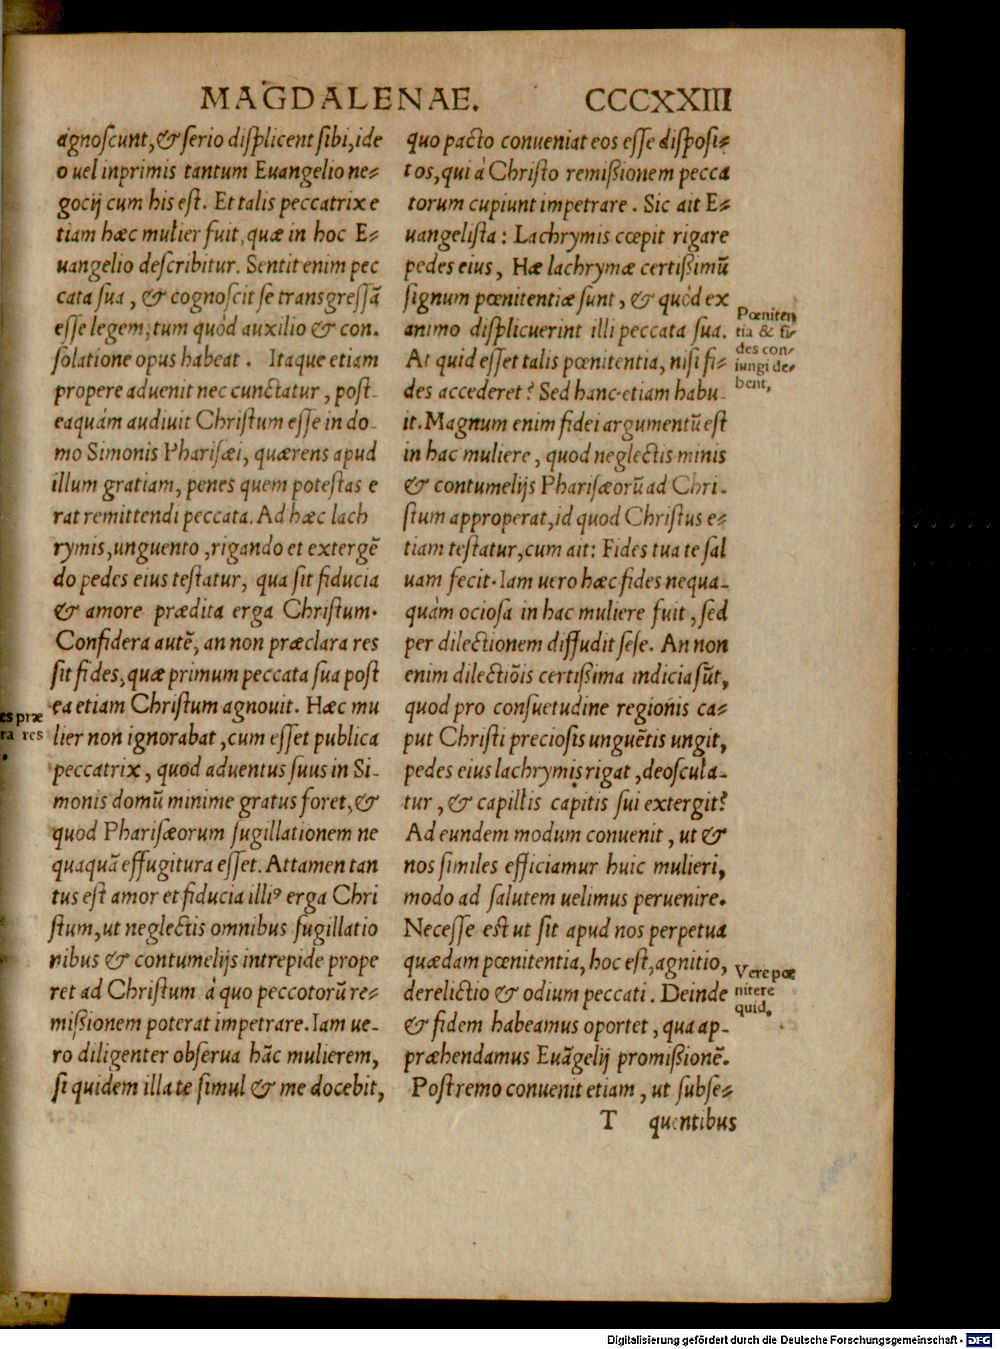 MAGDALENAE. CCCXXIII
agnoſcunt,& ſerio diſplicent ſibi,ide
o uel inprimis tantum Euangelio ne⸗
gocij cum his eſt. Et talis peccatrix e
tiam hæc mulier fuit,quæ in hoc E⸗
uangelio deſcribitur. Sentit enim pec
cata ſua, & cognoſcit ſe transgreſſā
eſſe legem,tum quòd auxilio & con.
ſolatione opus habeat. Itaque etiam
propere aduenit nec cunctatur, poſt-
eaquám audiuit Chriſtum eſſe in do-
mo Simonis Phariſæi, quærens apud
illum gratiam, penes quem poteſtas e
rat remittendi peccata. Ad hæc lach
rymis,unguento ,rigando et extergē
do pedes eius teſtatur, qua ſit fiducia
& amore prædita erga Chriſtum.
Conſidera autē, an non præclara res
ſit fides, quæ primum peccata ſua poſt
ea etiam Chriſtum agnouit. Hæc mu
lier non ignorabat ,cum eſſet publica
peccatrix, quod aduentus ſuus in Si-
monis domū minime gratus foret, &
quòd Phariſæorum ſugillationem ne
quaquā effugitura eſſet. Attamen tan
tus eſt amor et fiducia illiꝰ erga Chri
ſtum, ut neglectis omnibus ſugillatio
nibus & contumelijs intrepide prope
ret ad Chriſtum à quo peccotorū re⸗
mißionem poterat impetrare. Iam ue-
ro diligenter obſerua hāc mulierem,
ſi quidem illa te ſimul & me docebit,
es præ
ra res
quo pacto conueniat eos eſſe diſpoſi⸗
tos,qui à Chriſto remißionem pecca
torum cupiunt impetrare. Sic ait E⸗
uangeliſta: Lachrymis cœpit rigare
pedes eius, Hæ lachrymæ certißimū
ſignum pœnitentiæ ſunt, & quòd ex
animo diſplicuerint illi peccata ſua.
At quid eſſet talis pœnitentia, niſi fi⸗
des accederet? Sed hanc etiam habu-
it. Magnum enim fidei argumentū eſt
in hac muliere, quod neglectis minis
& contumelijs Phariſæorū ad Chri-
ſtum approperat,id quod Chriſtus e⸗
tiam teſtatur,cum ait: Fides tua te ſal
uam fecit. Iam uero hæc fides nequa-
quàm ocioſa in hac muliere fuit, ſed
per dilectionem diffudit ſeſe. An non
enim dilectiōis certißima indicia ſūt,
quod pro conſuetudine regionis ca⸗
put Chriſti precioſis unguētis ungit,
pedes eius lachrymis rigat ,deoſcula-
tur, & capillis capitis ſui extergit?
Ad eundem modum conuenit, ut &
nos ſimiles efficiamur huic mulieri,
modo ad ſalutem uelimus peruenire.
Neceſſe eſt ut ſit apud nos perpetua
quædam pœnitentia, hoc eſt, agnitio,
derelictio & odium peccati. Deinde
& fidem habeamus oportet, qua ap-
præhendamus Euāgelij promißionē.
Poſtremo conuenit etiam, ut ſubſe⸗
T quentibus
Pœniten
tia & fi⸗
des con⸗
iungi de⸗
bent,
Vere pœ
nitere
quid.
Digitalisierung gefördert durch die Deutsche Forschungsgemeinschaft - DFG